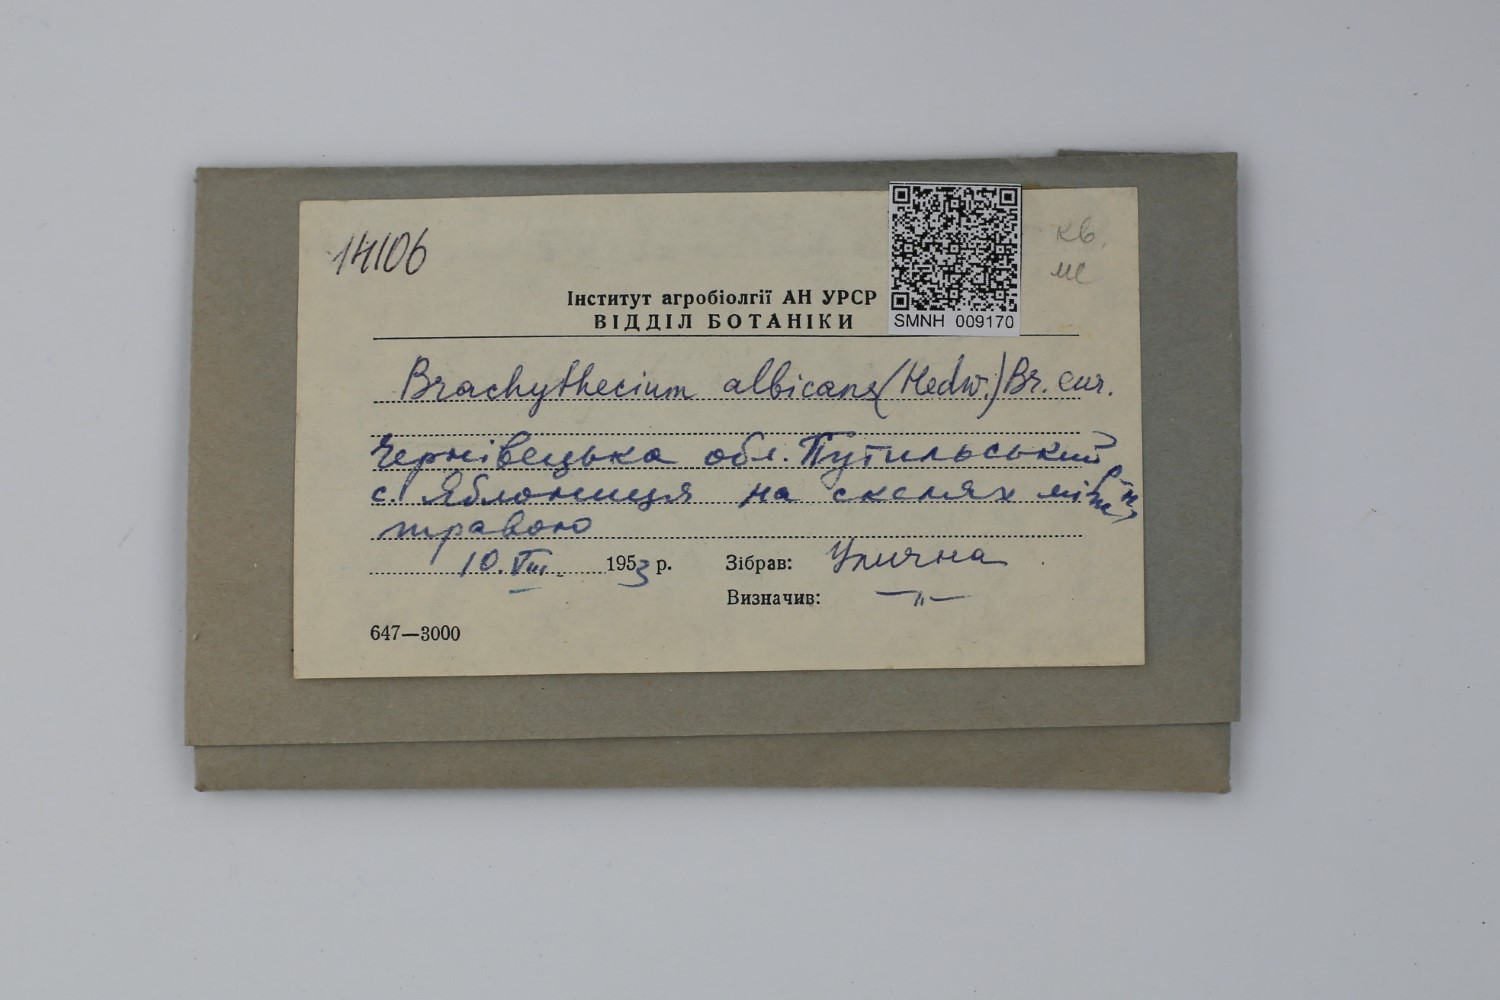 14106
кв.
ме
Інститут агробіолгії АН УРСР
ВІДДІЛ БОТАНІКИ
SMNH 009170
Brachythecium albicans (Hedw.) Br. eur.
Чернівецька обл. Путильський р-н,
с. Яблониця на скелях між
травою
10. VIII. 1953 р.
Зібрав: Улична
Визначив: —"—
647—3000